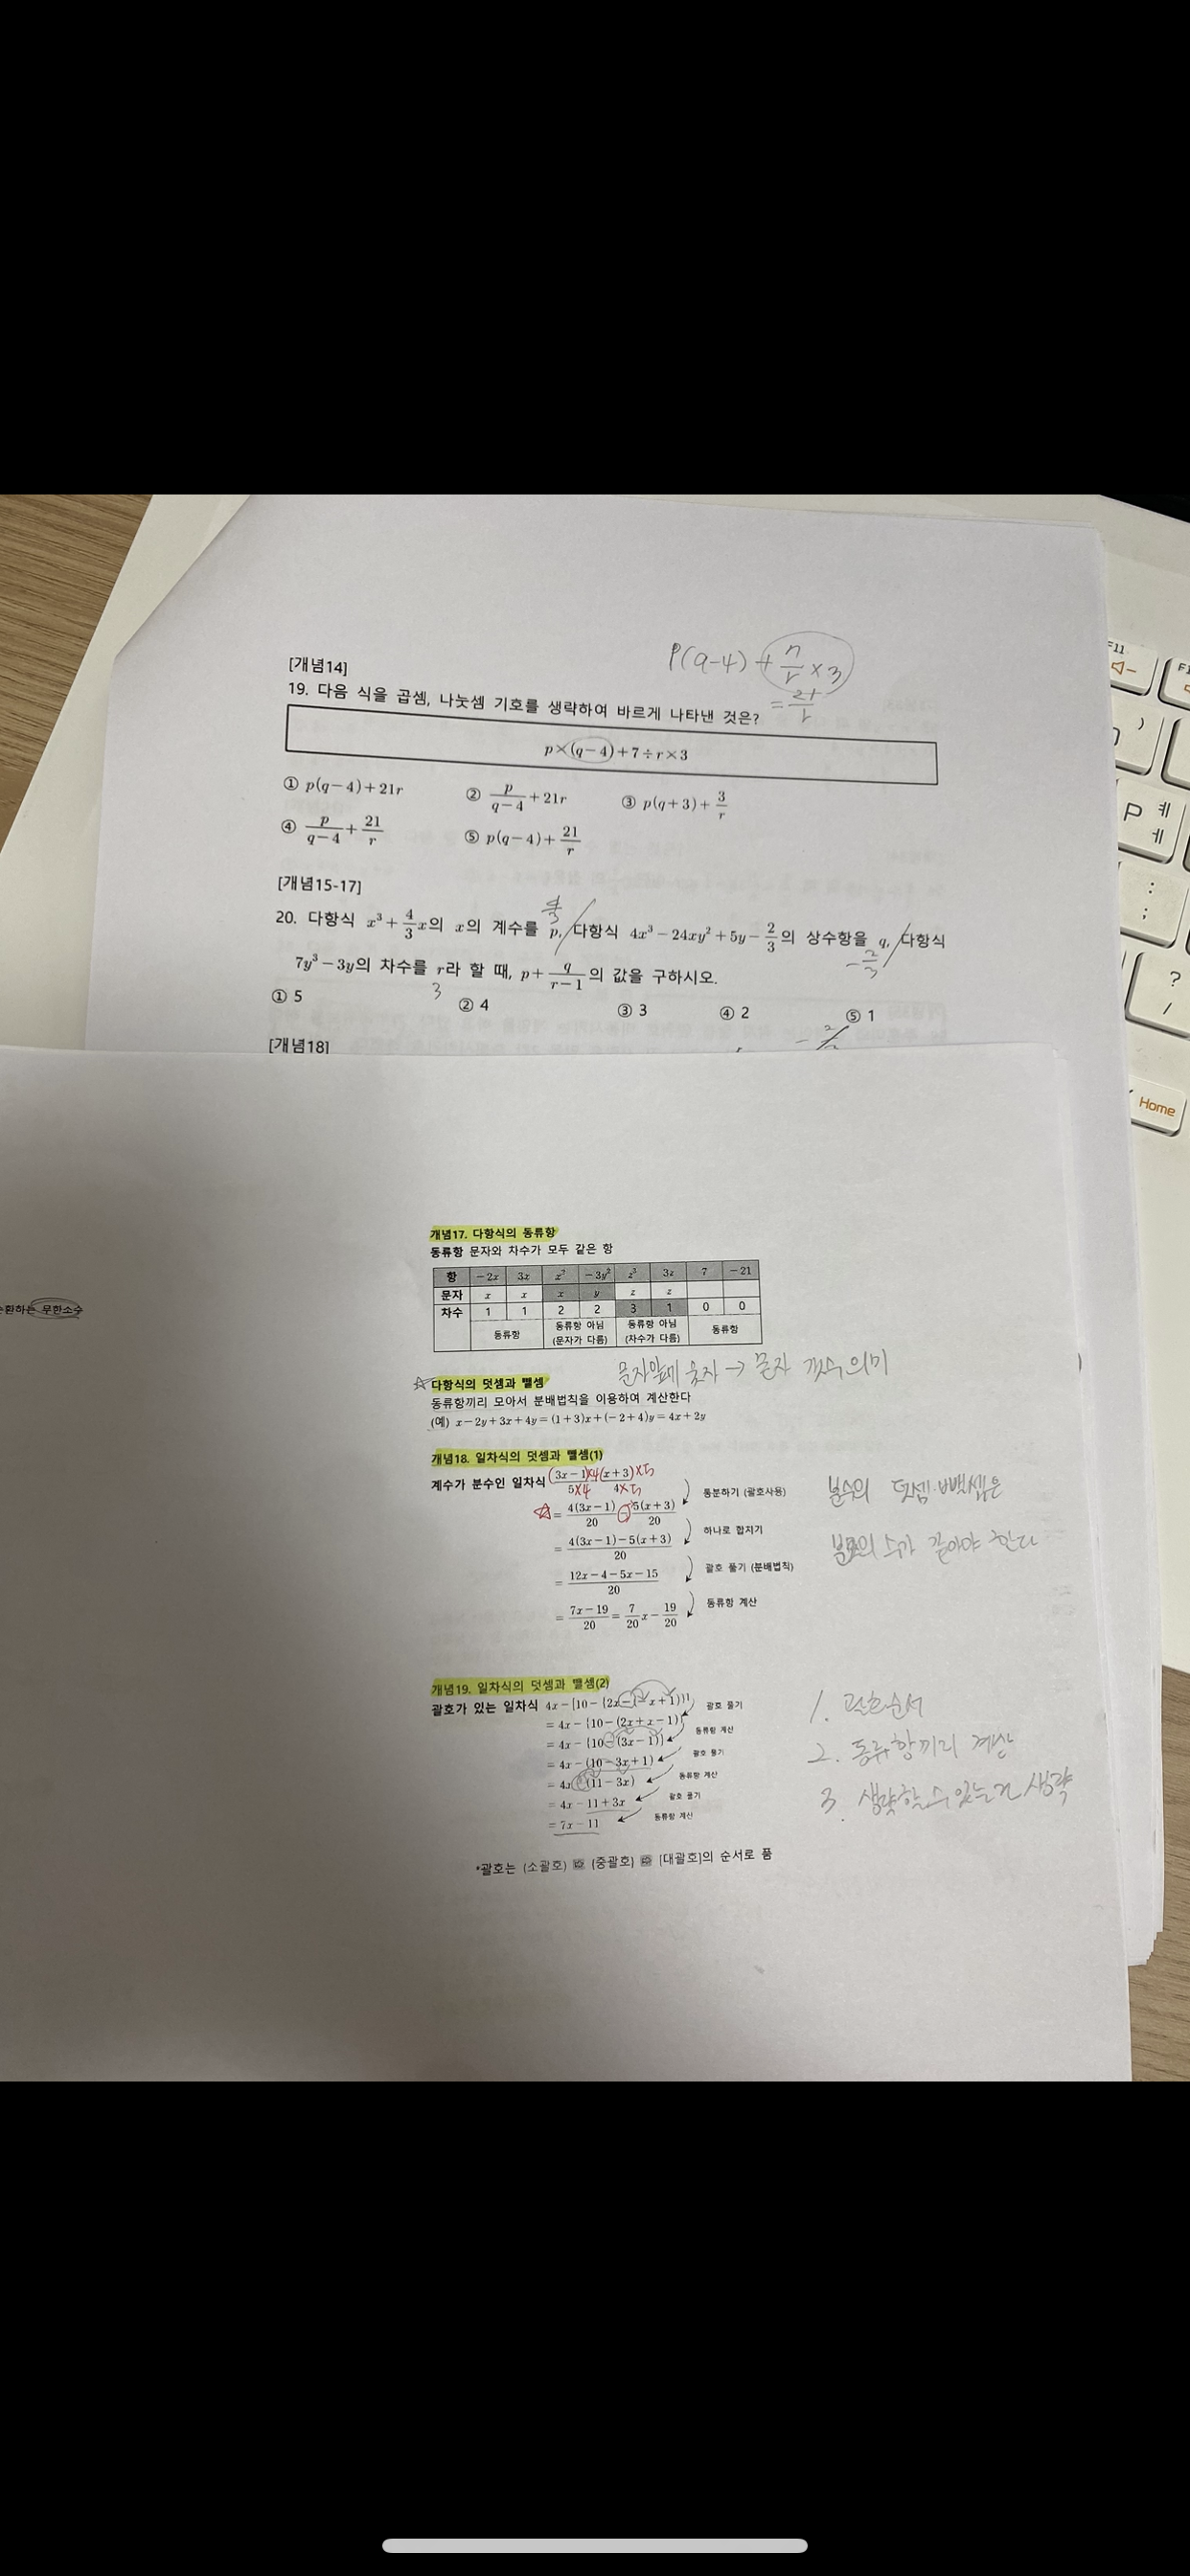 F11
P(q-4) + 7/r × 3
= 21/r
[개념14]
19. 다음 식을 곱셈, 나눗셈 기호를 생략하여 바르게 나타낸 것은?
p×(q-4)+7÷r×3
① p(q-4)+21r ② p/(q-4)+21r ③ p(q+3)+3/r
④ p/(q-4)+21/r ⑤ p(q-4)+21/r
P ㅖ
ㅔ
[개념15-17]
: ;
4/3
20. 다항식 x³+4/3x의 x의 계수를 p, 다항식 4x³-24xy²+5y-2/3의 상수항을 q, 다항식
-2/3
7y³-3y의 차수를 r라 할 때, p+q/(r-1)의 값을 구하시오.
3
? /
① 5 ② 4 ③ 3 ④ 2 ⑤ 1
[개념18]
Home
개념17. 다항식의 동류항
동류항 문자와 차수가 모두 같은 항
항 -2x 3x x² -3y² z³ 3z 7 -21
문자 x x x y z z
차수 1 1 2 2 3 1 0 0
동류항 동류항 아님 (문자가 다름) 동류항 아님 (차수가 다름) 동류항
순환하는 무한소수
문자앞에 숫자 → 문자 갯수 의미
☆ 다항식의 덧셈과 뺄셈
동류항끼리 모아서 분배법칙을 이용하여 계산한다
(예) x-2y+3x+4y=(1+3)x+(-2+4)y=4x+2y
개념18. 일차식의 덧셈과 뺄셈(1)
계수가 분수인 일차식 (3x-1)×4/5×4 (x+3)×5/4×5
통분하기 (괄호사용)
☆ = 4(3x-1)/20 - 5(x+3)/20
하나로 합치기
= (4(3x-1)-5(x+3))/20
괄호 풀기 (분배법칙)
= (12x-4-5x-15)/20
동류항 계산
= (7x-19)/20 = 7/20x - 19/20
분수의 덧셈·뺄셈은
분모의 수가 같아야 한다
개념19. 일차식의 덧셈과 뺄셈(2)
괄호가 있는 일차식 4x-[10-{2x-(-x+1)}]
괄호 풀기
= 4x-{10-(2x+x-1)}
동류항 계산
= 4x-{10-(3x-1)}
괄호 풀기
= 4x-(10-3x+1)
동류항 계산
= 4x-(11-3x)
괄호 풀기
= 4x-11+3x
동류항 계산
= 7x-11
1. 괄호순서
2. 동류항끼리 계산
3. 생략할 수 있는건 생략
*괄호는 (소괄호) ⇨ {중괄호} ⇨ [대괄호]의 순서로 품